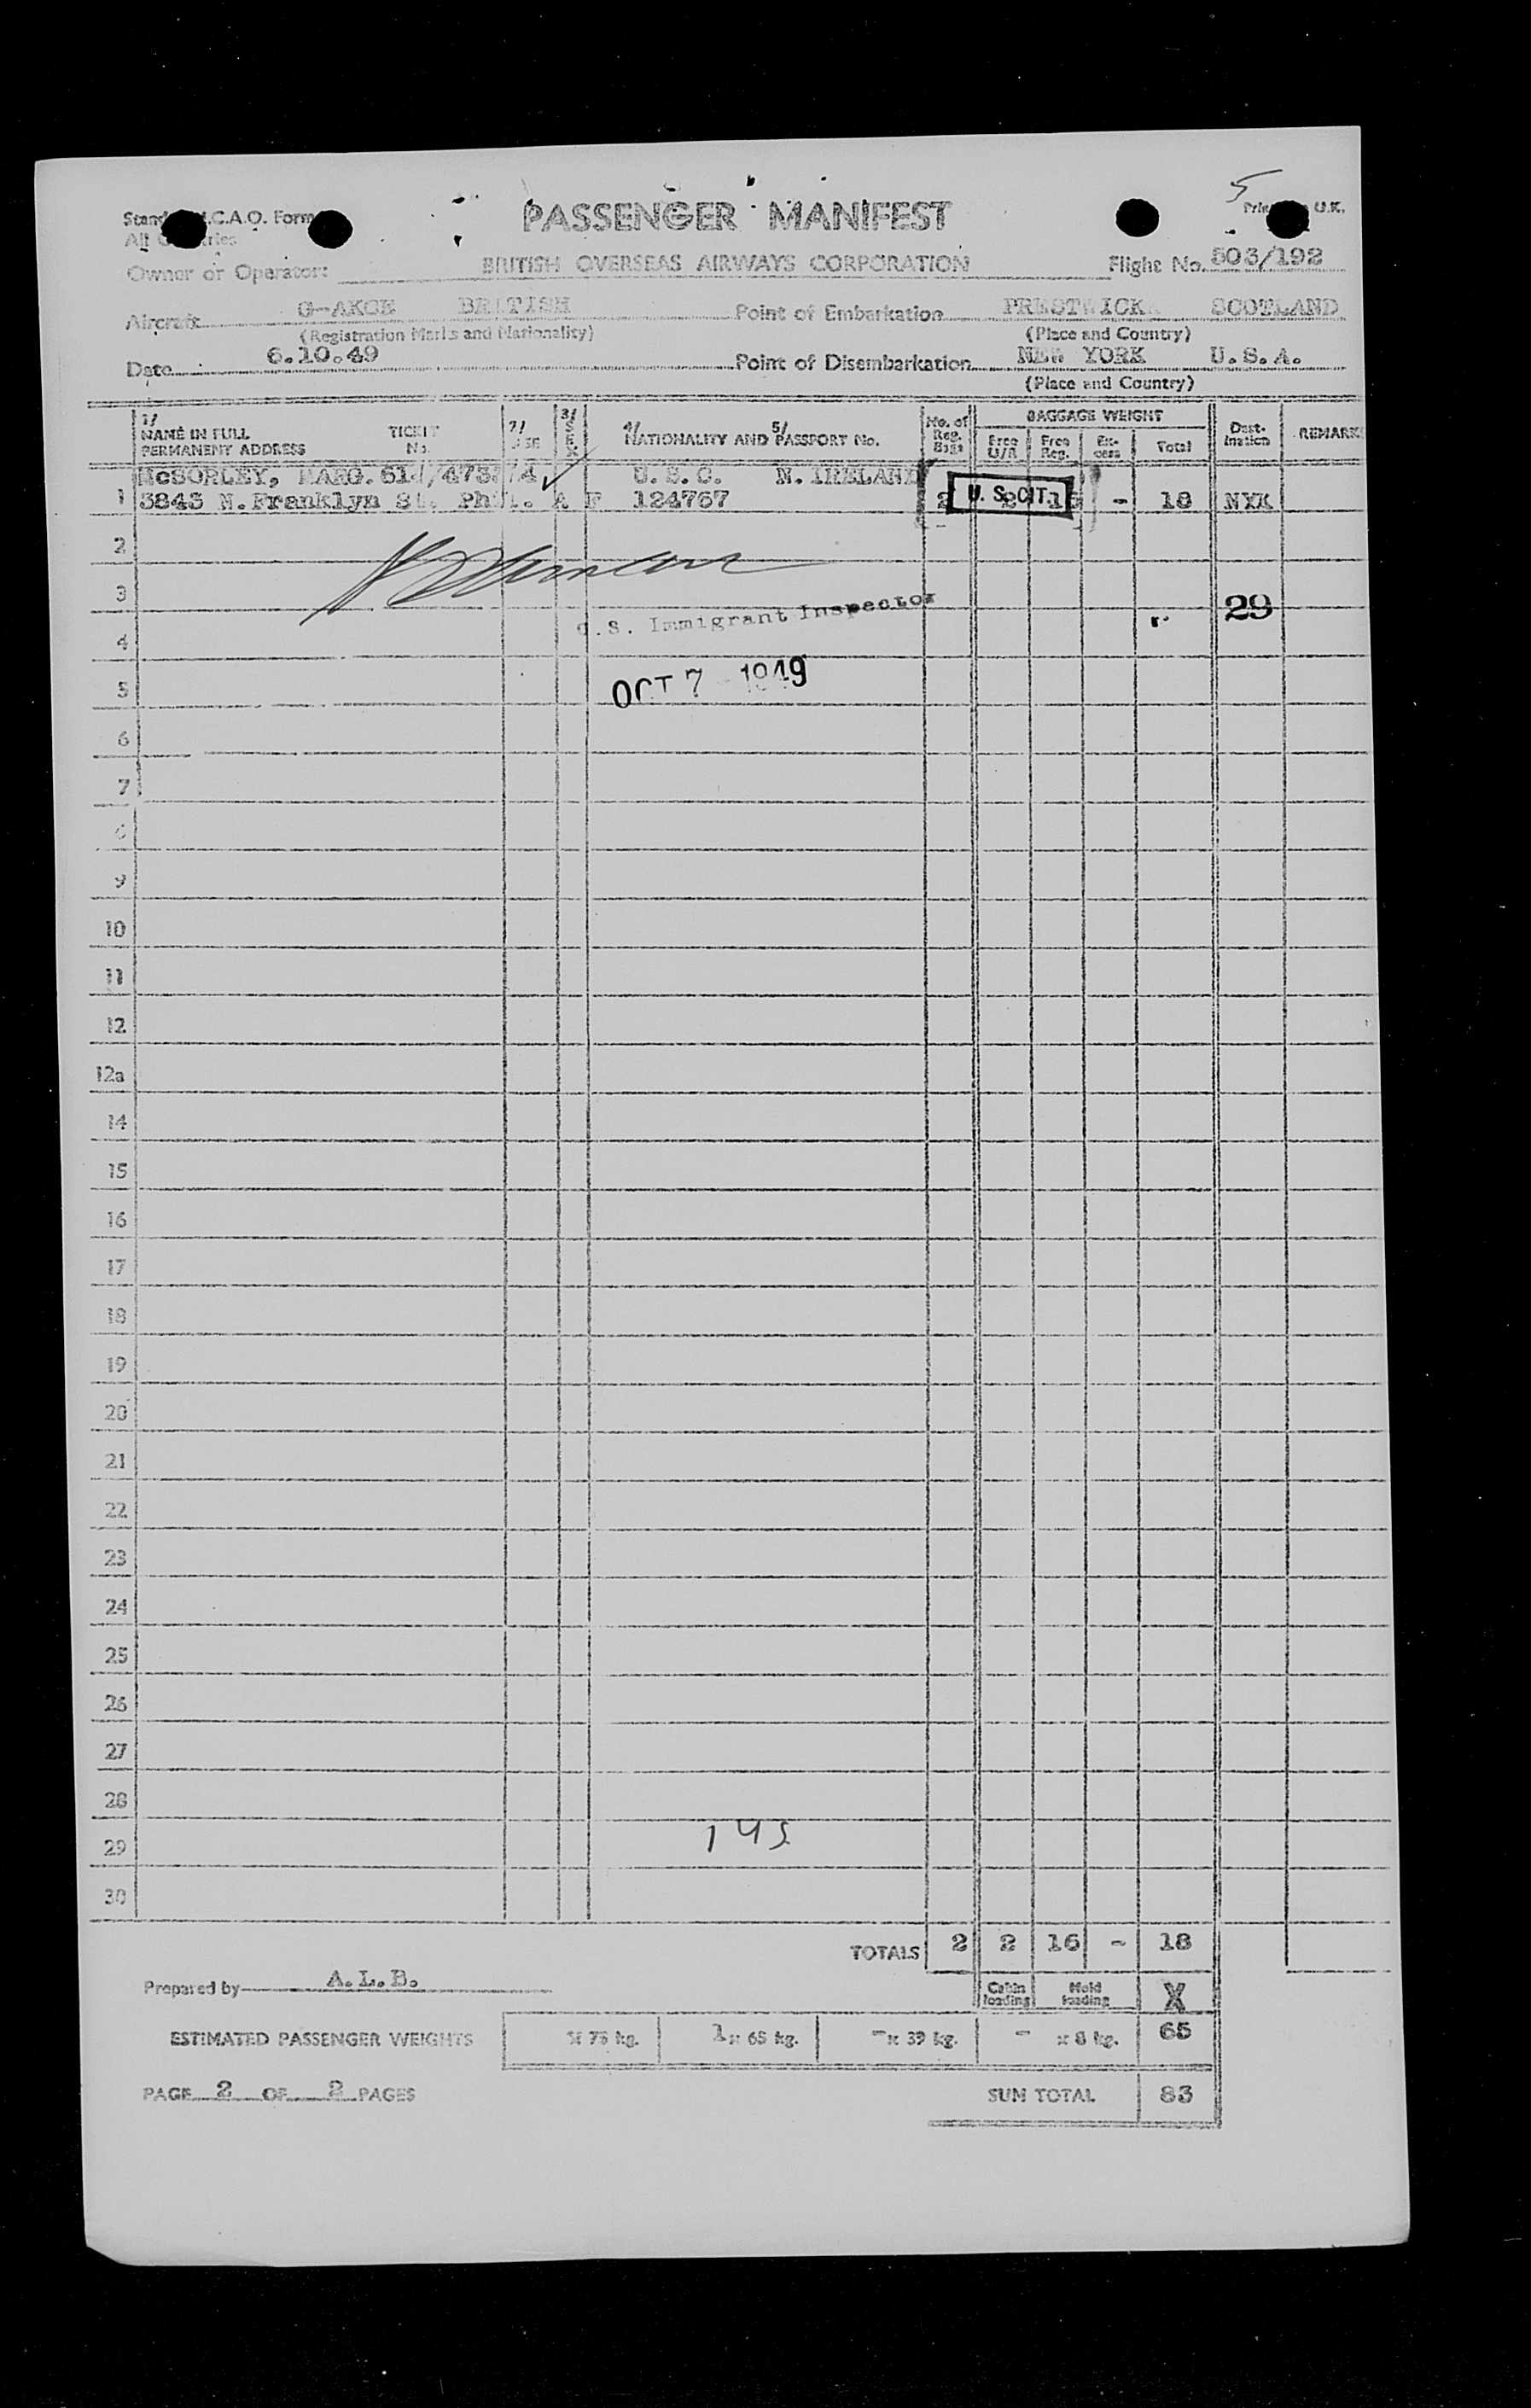 5
PASSENGER MANIFEST
I.C.A.O. Form
U.K.
Owner or Operator: BRITISH OVERSEAS AIRWAYS CORPORATION Flight No. 503/192
Aircraft BRITISH Point of Embarkation PRESTWICK SCOTLAND
(Registration Marks and Nationality) (Place and Country)
Date 6.10.49 Point of Disembarkation NEW YORK U.S.A.
(Place and Country)
1/ NAME IN FULL PERMANENT ADDRESS TICKET No. 2/ 3/ SEX 4/ NATIONALITY AND 5/ PASSPORT No. No. of Reg. Bags BAGGAGE WEIGHT Free U/R Free Reg. Ex-cess Total Dest-ination REMARK
McSORLEY, MARG. U.S.C. N.IRELAND
1 3843 N.Franklyn St. A F 124767 2 U.S.CIT. - 18 NYK
2
3
29
U.S. Immigrant Inspector
4
OCT 7 1949
5
6
7
9
10
11
12
12a
14
15
16
17
18
19
20
21
22
23
24
25
26
27
28
145
29
30
TOTALS 2 2 16 - 18
Prepared by A.L.B. Cabin loading Hold loading X
ESTIMATED PASSENGER WEIGHTS x 75 kg. 1 x 65 kg. - x 39 kg. - x 8 kg. 65
PAGE 2 OF 2 PAGES SUM TOTAL 83